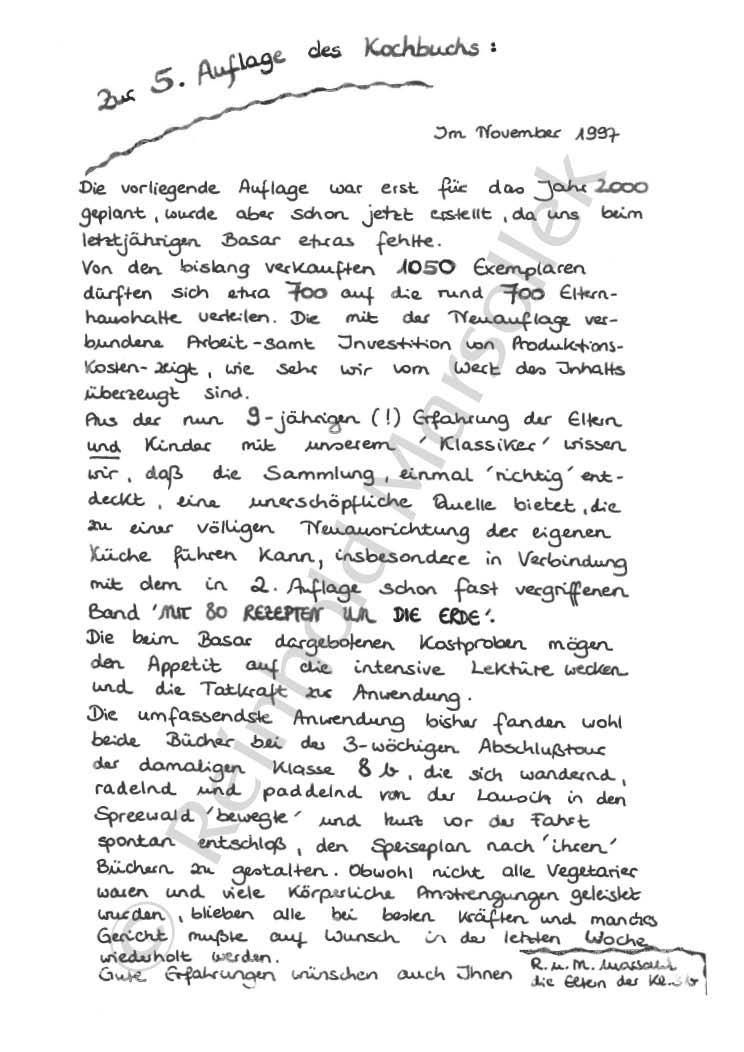 Zur 5. Auflage des Kochbuchs:
Im November 1997
Die vorliegende Auflage war erst für das Jahr 2000
geplant, wurde aber schon jetzt erstellt, da uns beim
letztjährigen Basar etwas fehlte.
Von den bislang verkauften 1050 Exemplaren
dürften sich etwa 700 auf die rund 700 Eltern-
haushalte verteilen. Die mit der Neuauflage ver-
bundene Arbeit - samt Investition von Produktions-
kosten - zeigt, wie sehr wir vom Wert des Inhalts
überzeugt sind.
Aus der nun 9-jährigen (!) Erfahrung der Eltern
und Kinder mit unserem 'Klassiker' wissen
wir, daß die Sammlung, einmal 'richtig' ent-
deckt, eine unerschöpfliche Quelle bietet, die
zu einer völligen Neuausrichtung der eigenen
Küche führen kann, insbesondere in Verbindung
mit dem in 2. Auflage schon fast vergriffenen
Band 'MIT 80 REZEPTEN UM DIE ERDE'.
Die beim Basar dargebotenen Kostproben mögen
den Appetit auf die intensive Lektüre wecken
und die Tatkraft zur Anwendung.
Die umfassendste Anwendung bisher fanden wohl
beide Bücher bei der 3-wöchigen Abschlußtour
der damaligen Klasse 8b, die sich wandernd,
radelnd und paddelnd von der Lausch in den
Spreewald 'bewegte' und kurz vor der Fahrt
spontan entschloß, den Speiseplan nach 'ihren'
Büchern zu gestalten. Obwohl nicht alle Vegetarier
waren und viele körperliche Anstrengungen geleistet
wurden, blieben alle bei besten Kräften und manches
Gericht mußte auf Wunsch in der letzten Woche
wiederholt werden.
Gute Erfahrungen wünschen auch Ihnen
R. u. M. Marsollek
die Eltern der Kl.
© Reinhold Marsollek